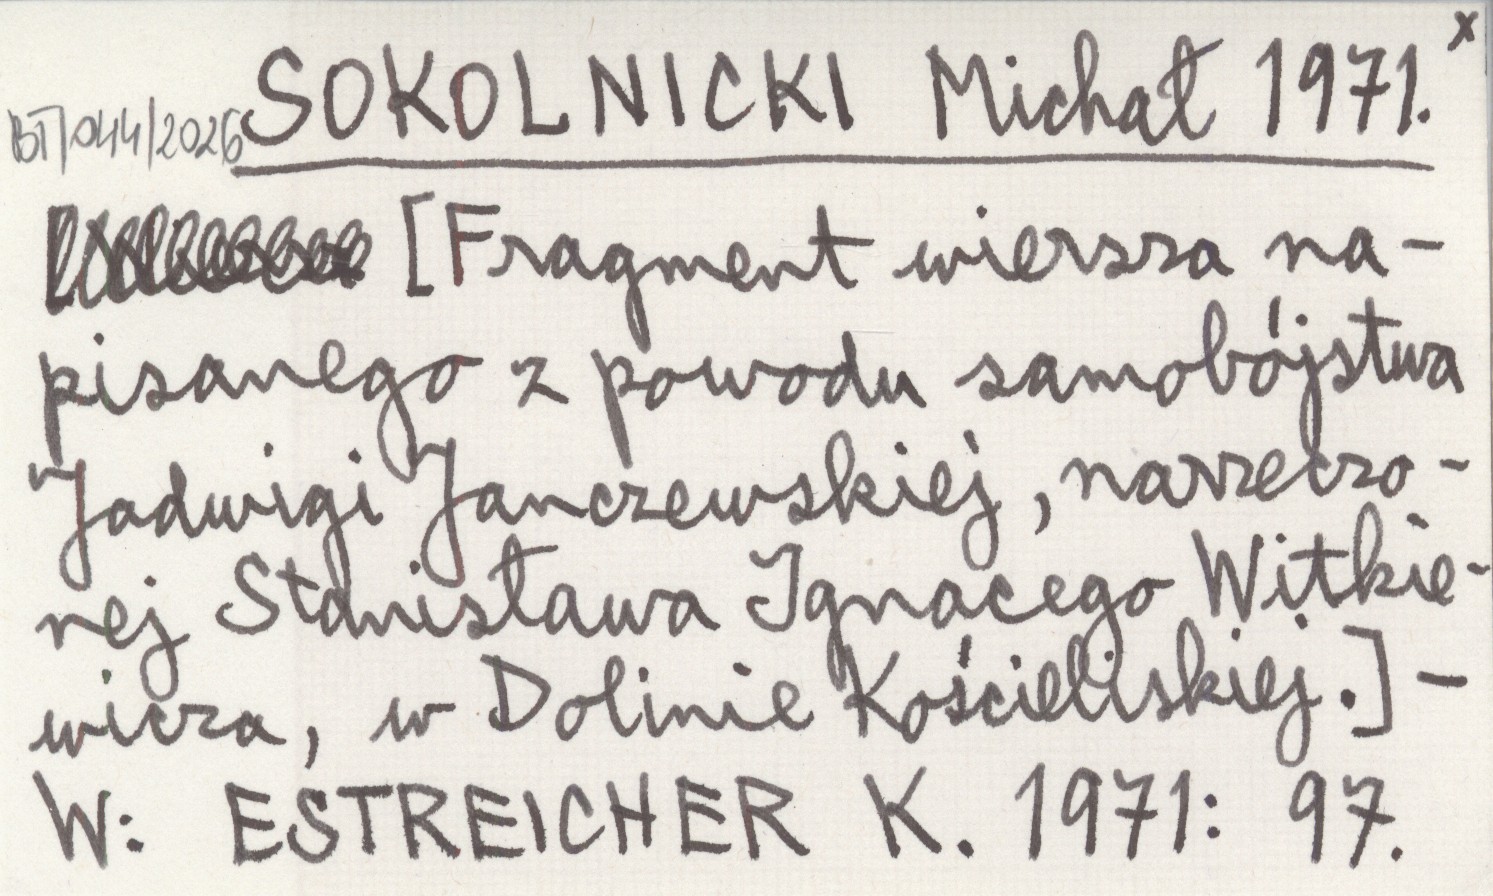 SOKOLNICKI Michał 1971.x
BT/044/2026
[Fragment wiersza na-
pisanego z powodu samobójstwa
Jadwigi Janczewskiej, narzeczo-
nej Stanisława Ignacego Witkie-
wicza, w Dolinie Kościeliskiej.] -
W: ESTREICHER K. 1971: 97.